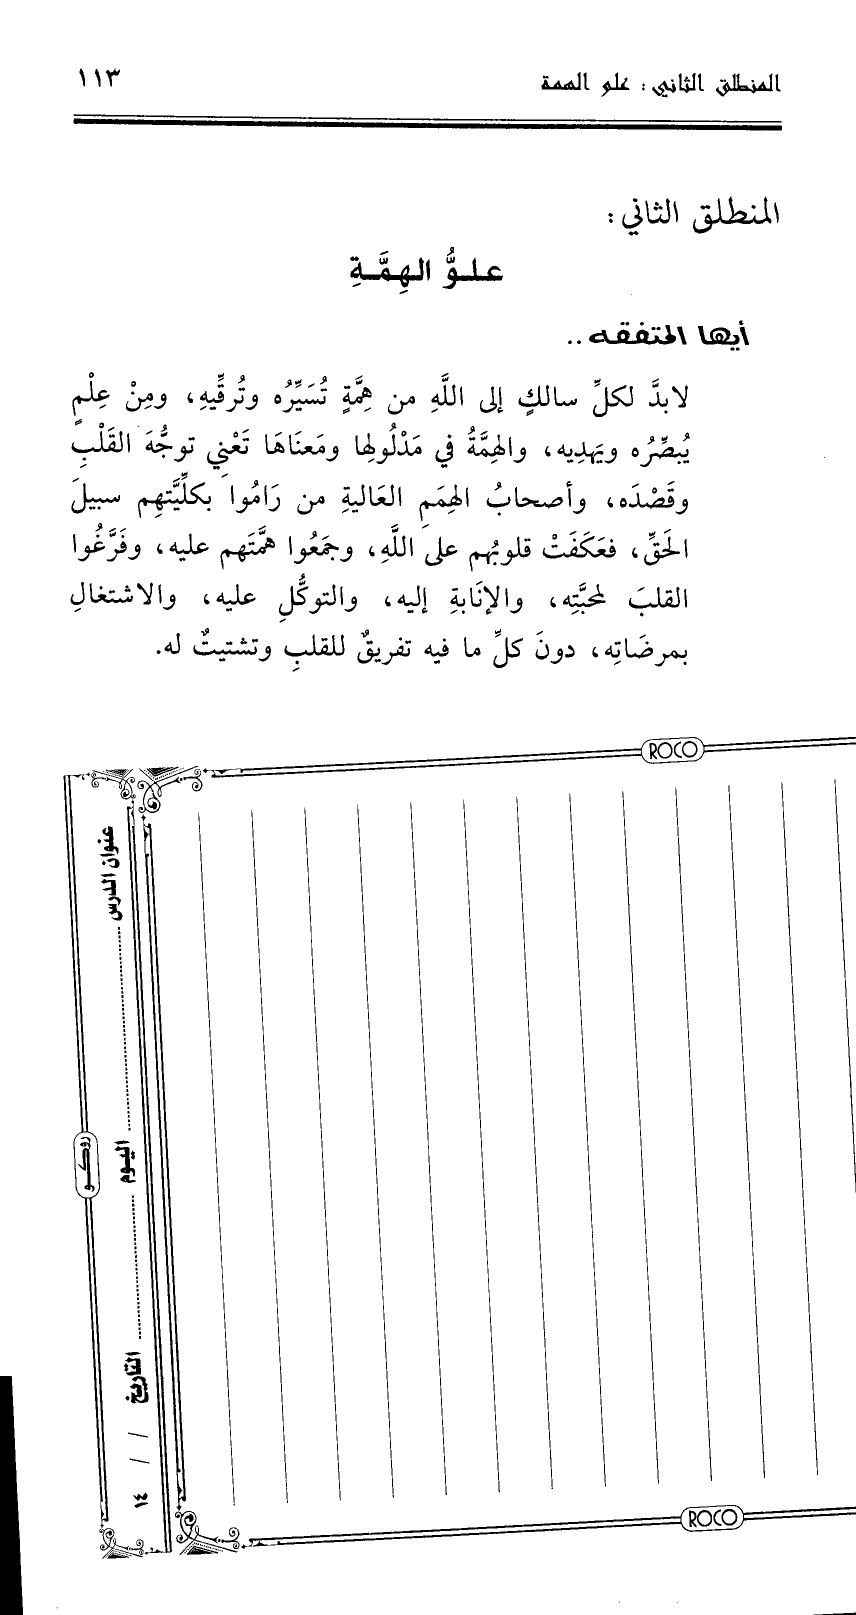 المنطلق الثاني : علو الهمة ١١٣
المنطلق الثاني :
علـوُّ الـهِمَّـةِ
أيها المتفقه ..
لابدَّ لكلِّ سالكٍ إلى اللَّهِ من هِمَّةٍ تُسَيِّرُه وتُرقِّيهِ، ومِنْ عِلْمٍ
يُبصِّرُه ويَهدِيه، والهِمَّةُ في مَدْلُولِها ومَعنَاهَا تَعْنِي توجُّهَ القَلْبِ
وقَصْدَه، وأصحابُ الهِمَمِ العَاليةِ من رَامُوا بكلِّيَّتهِم سبيلَ
الحَقِّ، فعَكَفَتْ قلوبُهم على اللَّهِ، وجَمَعُوا همَّتَهم عليه، وفَرَّغُوا
القلبَ لمحبَّتِه، والإنَابةِ إليه، والتوكُّلِ عليه، والاشتغالِ
بمرضَاتِه، دونَ كلِّ ما فيه تفريقٌ للقلبِ وتشتيتٌ له.
ROCO
عنوان الدرس
اليوم
التاريخ / / ١٤
روكـو
ROCO